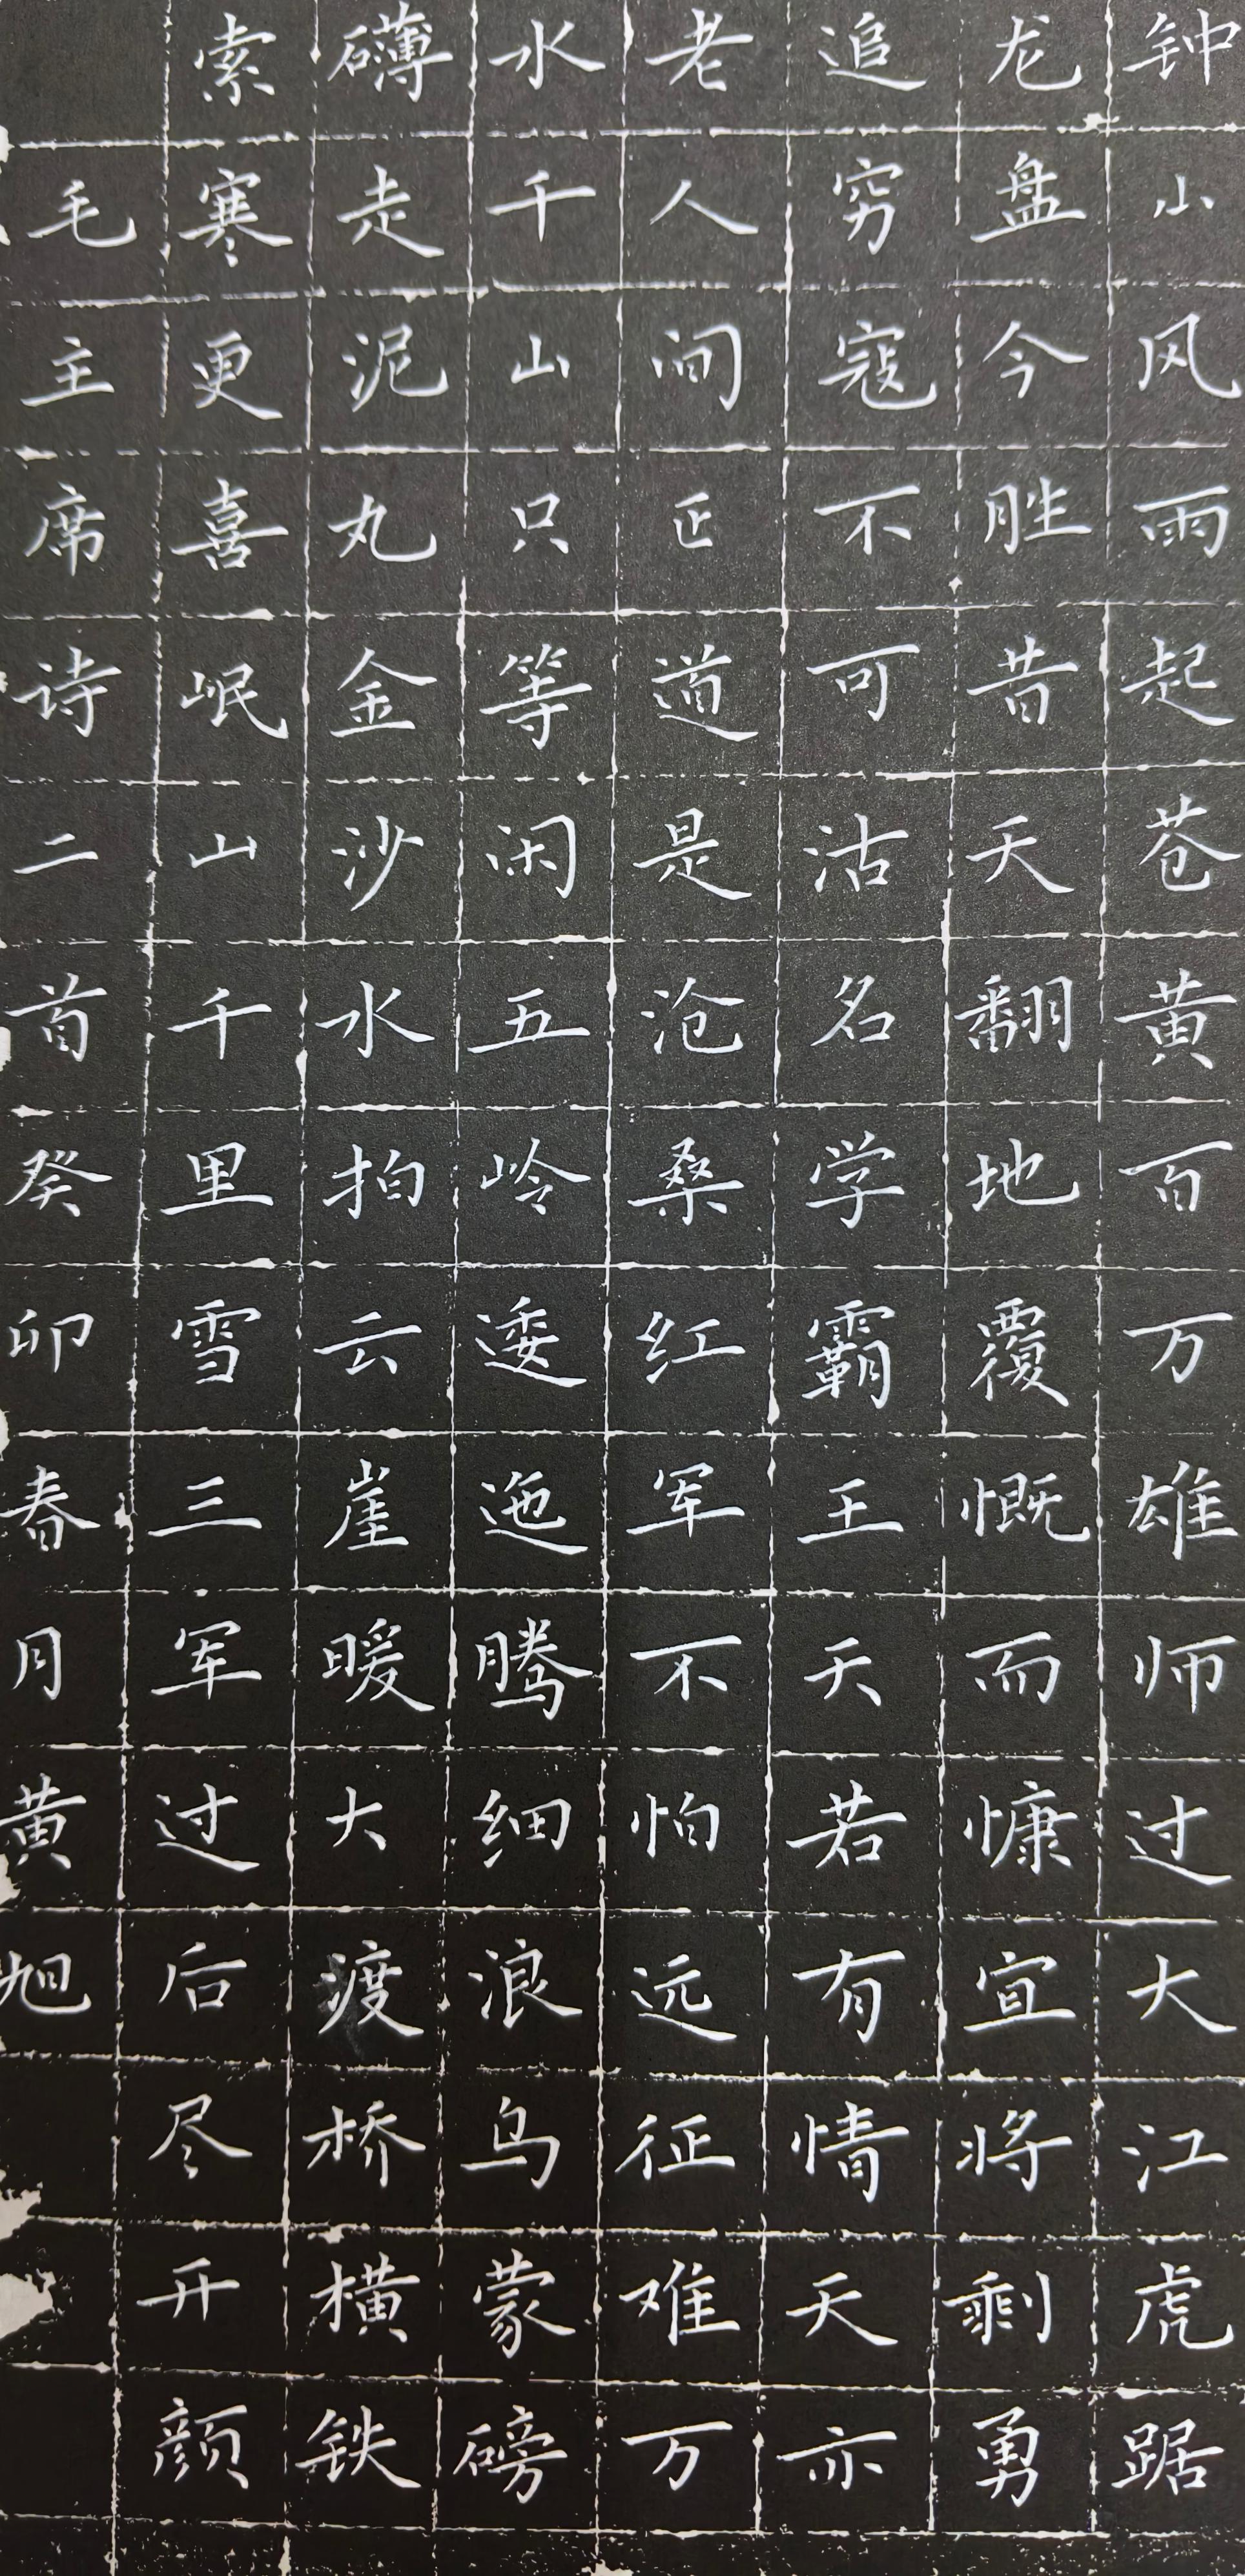 钟山风雨起苍黄百万雄师过大江虎踞
龙盘今胜昔天翻地覆慨而慷宜将剩勇
追穷寇不可沽名学霸王天若有情天亦
老人间正道是沧桑红军不怕远征难万
水千山只等闲五岭逶迤腾细浪乌蒙磅
礴走泥丸金沙水拍云崖暖大渡桥横铁
索寒更喜岷山千里雪三军过后尽开颜
毛主席诗二首癸卯春月黄旭